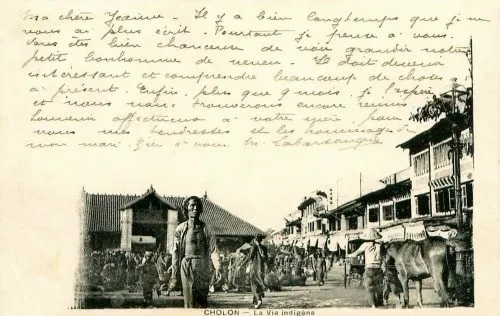 Ma chère Jeanne. Il y a bien longtemps que je ne
vous ai plus écrit. Pourtant je pense à vous.
Vous êtes bien chanceuse de voir grandir notre
petit bonhomme de neveu. Il doit devenir
intéressant et comprendre beaucoup de choses
à présent. Enfin, plus que 9 mois, je l'espère
et nous nous trouverons encore réunis
affectueux à votre mère, pour
vous mes tendresses et les hommages de
mon mari. Bien à vous. M.
CHOLON — La Vie indigène